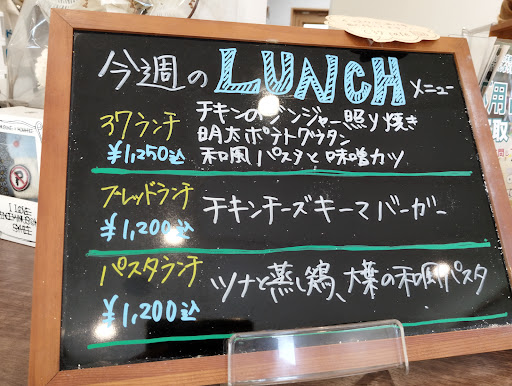 今週のLUNCHメニュー
ヨクランチ
¥1,250込
チキンのジンジャー照り焼き
明太ポテトグラタン
和風パスタと味噌カツ
ブレッドランチ
¥1,200込
チキンチーズキーマバーガー
パスタランチ
¥1,200込
ツナと蒸し鶏、大葉の和風パスタ
I LOVE